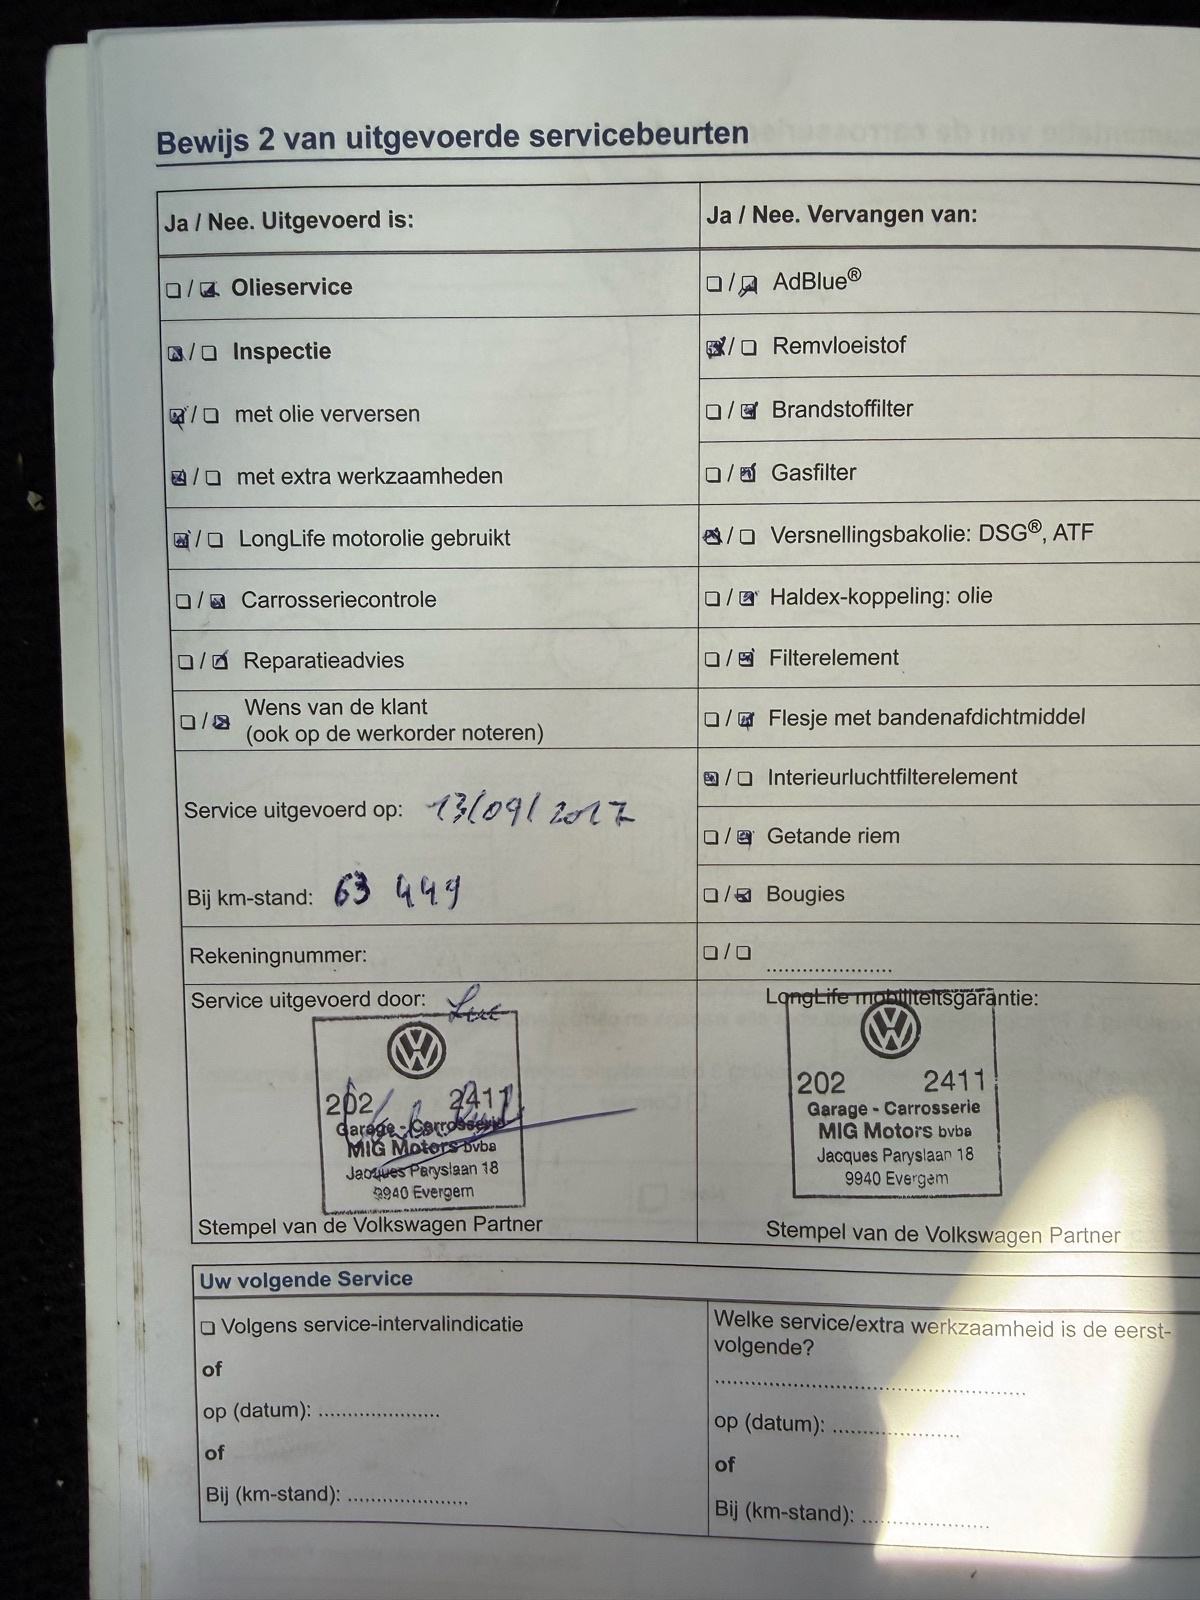 Bewijs 2 van uitgevoerde servicebeurten
Ja / Nee. Uitgevoerd is:
☐ / ☑ Olieservice
☑ / ☐ Inspectie
☑ / ☐ met olie verversen
☑ / ☐ met extra werkzaamheden
☑ / ☐ LongLife motorolie gebruikt
☐ / ☑ Carrosseriecontrole
☐ / ☑ Reparatieadvies
☐ / ☑ Wens van de klant
(ook op de werkorder noteren)
Service uitgevoerd op: 13/09/2017
Bij km-stand: 63 449
Rekeningnummer:
Ja / Nee. Vervangen van:
☐ / ☑ AdBlue®
☑ / ☐ Remvloeistof
☐ / ☑ Brandstoffilter
☐ / ☑ Gasfilter
☑ / ☐ Versnellingsbakolie: DSG®, ATF
☐ / ☑ Haldex-koppeling: olie
☐ / ☑ Filterelement
☐ / ☑ Flesje met bandenafdichtmiddel
☑ / ☐ Interieurluchtfilterelement
☐ / ☑ Getande riem
☐ / ☑ Bougies
☐ / ☐ .....................
Service uitgevoerd door:
VW
202 2411
Garage - Carrosserie
MIG Motors bvba
Jacques Paryslaan 18
9940 Evergem
Stempel van de Volkswagen Partner
LongLife mobiliteitsgarantie:
VW
202 2411
Garage - Carrosserie
MIG Motors bvba
Jacques Paryslaan 18
9940 Evergem
Stempel van de Volkswagen Partner
Uw volgende Service
☐ Volgens service-intervalindicatie
of
op (datum): ....................
of
Bij (km-stand): ....................
Welke service/extra werkzaamheid is de eerst-
volgende?
..................................................
op (datum): ....................
of
Bij (km-stand): ....................